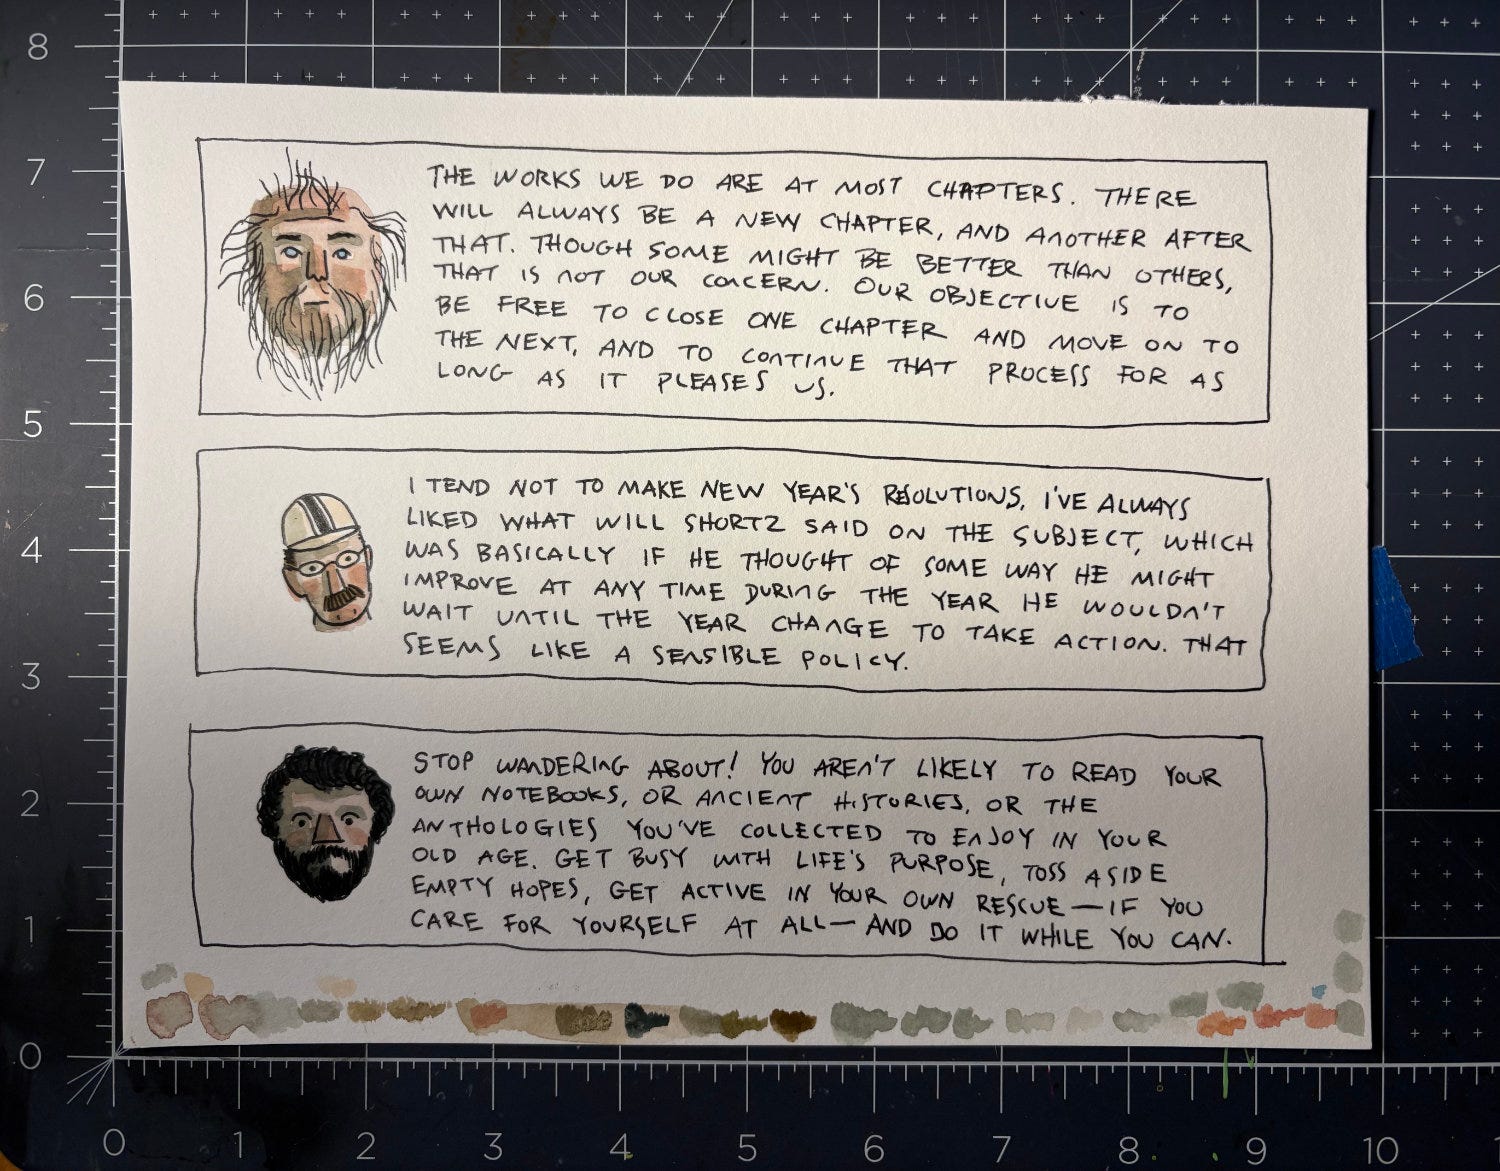 THE WORKS WE DO ARE AT MOST CHAPTERS. THERE
WILL ALWAYS BE A NEW CHAPTER, AND ANOTHER AFTER
THAT. THOUGH SOME MIGHT BE BETTER THAN OTHERS,
THAT IS NOT OUR CONCERN. OUR OBJECTIVE IS TO
BE FREE TO CLOSE ONE CHAPTER AND MOVE ON TO
THE NEXT, AND TO CONTINUE THAT PROCESS FOR AS
LONG AS IT PLEASES US.
I TEND NOT TO MAKE NEW YEAR'S RESOLUTIONS. I'VE ALWAYS
LIKED WHAT WILL SHORTZ SAID ON THE SUBJECT, WHICH
WAS BASICALLY IF HE THOUGHT OF SOME WAY HE MIGHT
IMPROVE AT ANY TIME DURING THE YEAR HE WOULDN'T
WAIT UNTIL THE YEAR CHANGE TO TAKE ACTION. THAT
SEEMS LIKE A SENSIBLE POLICY.
STOP WANDERING ABOUT! YOU AREN'T LIKELY TO READ YOUR
OWN NOTEBOOKS, OR ANCIENT HISTORIES, OR THE
ANTHOLOGIES YOU'VE COLLECTED TO ENJOY IN YOUR
OLD AGE. GET BUSY WITH LIFE'S PURPOSE, TOSS ASIDE
EMPTY HOPES, GET ACTIVE IN YOUR OWN RESCUE—IF YOU
CARE FOR YOURSELF AT ALL—AND DO IT WHILE YOU CAN.
8
7
6
5
4
3
2
1
0
0 1 2 3 4 5 6 7 8 9 10